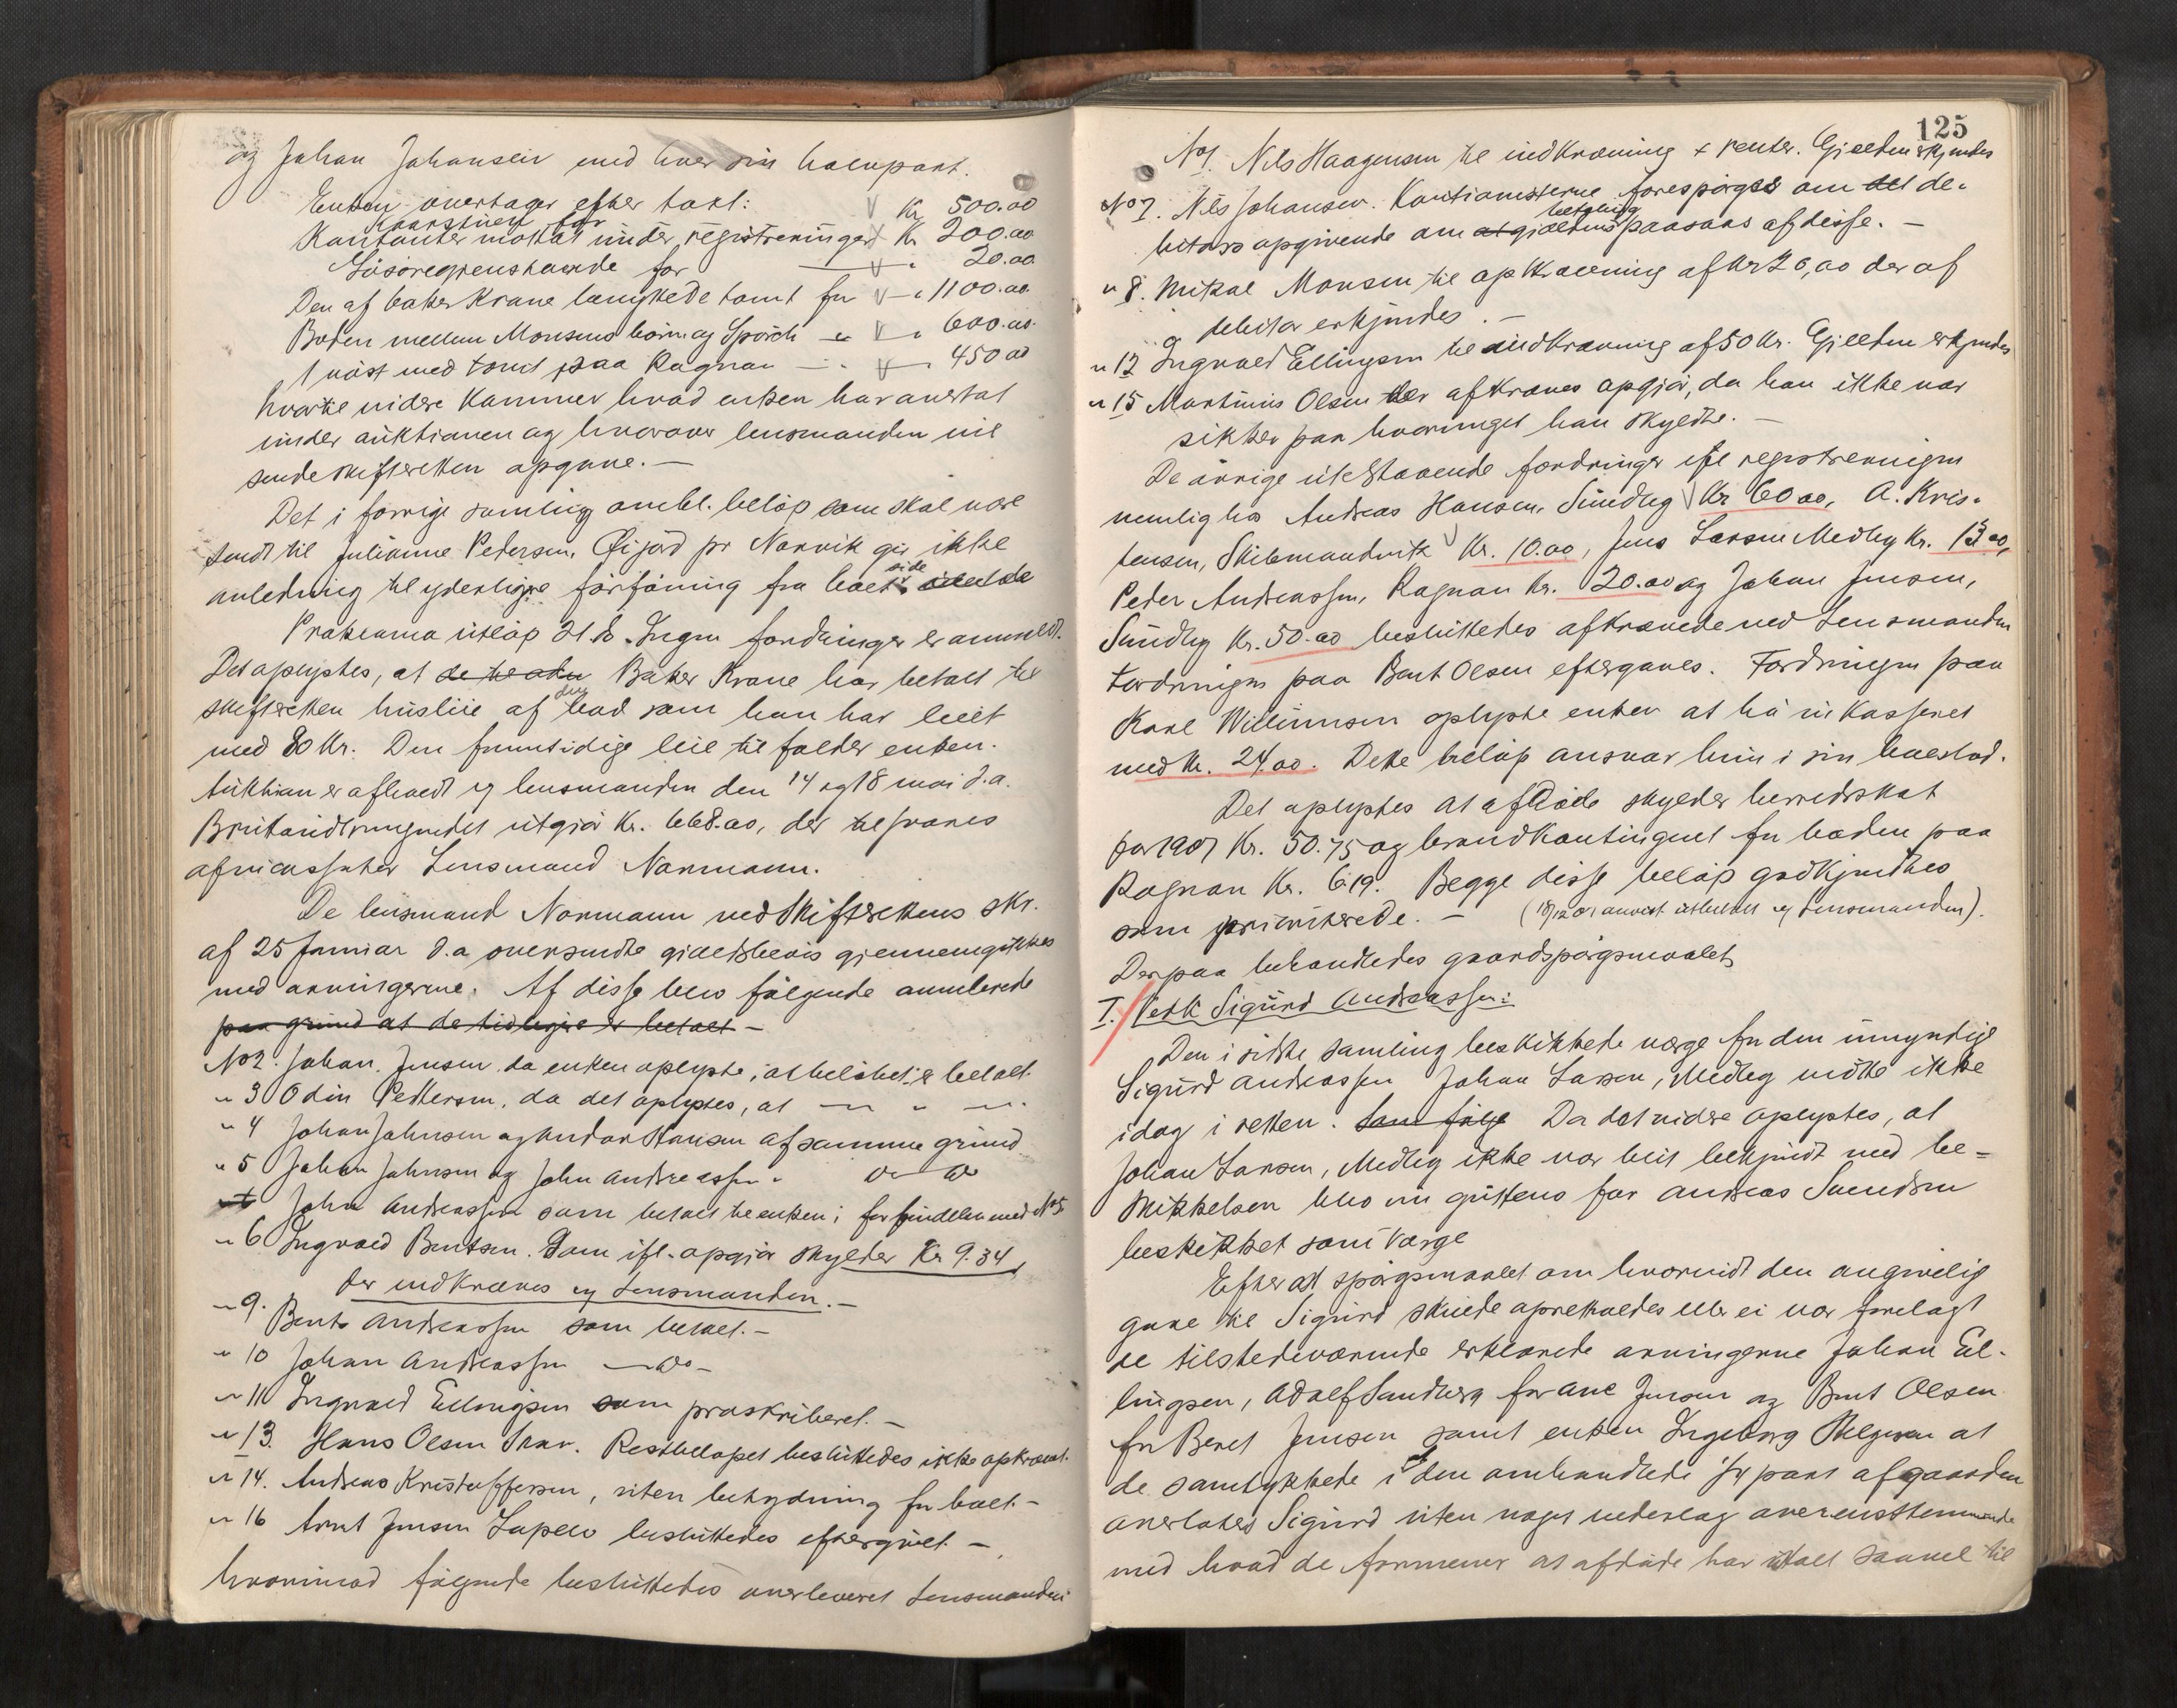 og Johan Johansen med hver sin halvpart.
Enken overtager efter takt:
Kaarstuen for Kr 500.00
Kontanter mottat under registreringen Kr 200.00
Løsøregjenstande for 20.00
Den af baker Krane bengstede tomt for 1100.00
Boden mellem Monsens boin og Spørck 600.00
1 nøst med tomt paa Rognan 450 00
hvortil videre kommer hvad enken har overtat
under auktionen og hvorover lensmanden vil
sende skifteretten opgave.—
Det i forrige samling omhl. beløp som skal være
sendt til Julianne Pedersen, Øijord pr Narvik gir ikke
anledning til yderligere førføining fra boets side
Proklama utløp 21. d. Ingen fordringer er anmeldt.
Det oplystes, at de Baker Krane har betalt til
skifteretten husleie af den bod som han har leiet
med 80 Kr. Den fremtidige leie tilfalder enken.
Auktion er afholdt ig lensmanden den 14 og 18 mai d.a.
Bruttoudbringendet utgjør Kr. 668.00, der tilsvares
af incassator Lensmand Normann.
De lensmand Normann ved Skifterettens skr.
af 25 Januar d.a oversendte gjeldsbevis gjennemgikkes
med arvingerne. Af disse blev følgende annulerede
paa grund at de tidligere er betalt —
No 2. Johan Jensen, da enken oplyste, at beløbet er betalt.
" 3 Odin Pettersen, da det oplystes, at — " —
" 4 Johan Johnsen og Andor Hansen af samme grund
" 5 Johan Johnsen og John Andreassen " do do
John Andreassen som betalt til enken i forbindelse med No 5
" 6 Ingvald Bentsen. Som ifl. opgjør skylder Kr 9.34,
der indkræves ig Lensmanden.—
" 9. Bent Andreassen som betalt.—
" 10 Johan Andreassen — do —
" 11 Ingvald Ellingsen som præskriberet.—
" 13. Hans Olsen Snav. Restbeløpet besluttedes ikke opkrævet.
" 14. Andreas Kristoffersen, uten betydning for boet.—
" 16 Arnt Jensen Lapelv besluttedes eftergivet.—
hvorimod følgende besluttedes overleveret Lensmanden:
125
No 1. Nils Haagensen til indkrævning + renter. Gjælden erkjendes
No 7. Nils Johansen. Kautionisterne forespørges om det de-
bitors opgivende om at gjældens betaling paasaas af disse.—
" 8. Mikal Monsen til opkrævning af Kr 26,00 der af
debitor erkjendes.—
" 12 Ingvald Ellingsen til indkrævning af 50 Kr. Gjælden erkjendes
" 15 Martinus Olsen der afkræves opgjør, da han ikke var
sikker paa hvormeget han skyldte.—
De øvrige utestaaende fordringer ifl registreringen
nemlig hos Andreas Hansen, Sundby Kr 60 00, A. Kris-
tensen, Skibmandvik Kr. 10.00, Jens Larsen Medby Kr. 15 00,
Peder Andreassen, Rognan Kr. 20.00 og Johan Jensen,
Sundby Kr. 50.00 besluttedes afkrævede ved Lensmanden
Fordringen paa Bent Olsen eftergaves. Fordringen paa
Karl Willumsen oplyste enken at ha inkasseret
med Kr. 24.00. Dette beløp ansvar hun i sin boeslod.
Det oplystes at afdøde skylder herredsskat
for 1907 Kr. 50.75 og brandkontingent for boden paa
Rognan Kr. 6.19. Begge disse beløp godkjendtes
som prioriterede.— (18/12 07 anvist utbetalt ig Lensmanden).
Derpaa behandledes gaardspørgsmaalet,
I. Vedk Sigurd Andreassen:
Den i sidste samling beskikkede værge for den umyndige
Sigurd Andreassen Johan Larsen, Medby møtte ikke
idag i retten. Som følge Da det videre oplystes, at
Johan Larsen, Medby ikke var blit bekjendt med be-
skikkelsen blev nu guttens far Andreas Svendsen
beskikket som værge
Efter at spørgsmaalet om hvorvidt den angivelig
gave til Sigurd skulde opretholdes eller ei var forelagt
de tilstedeværende erklærede arvingerne Johan El-
lingsen, Adolf Sandberg for Ane Jensen og Bent Olsen
for Beret Jensen samt enken Ingeborg Helgesen at
de samtykkede i at den omhandlede part af gaarden
overlates Sigurd uten noget vederlag overensstemmende
med hvad de formener at afdøde har uttalt saavel til